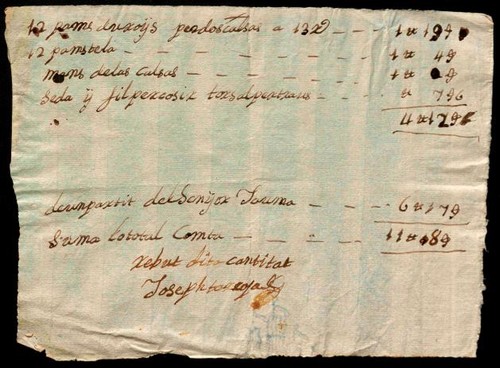 12 pams duroijs per dos calsas a 132 — — — 1 ₶ 194
12 pams tela — — — — — — 1 ₶ 49
mans de las calsas — — — — 1 ₶ 9
seda ij fil per cosir torsal per traus — — — ₶ 796
4 ₶ 1796
de un partit del Senijor Jauma — — 6 ₶ 179
Suma lo total Comta — — " — 11 ₶ 89
rebut dita cantitat
Joseph